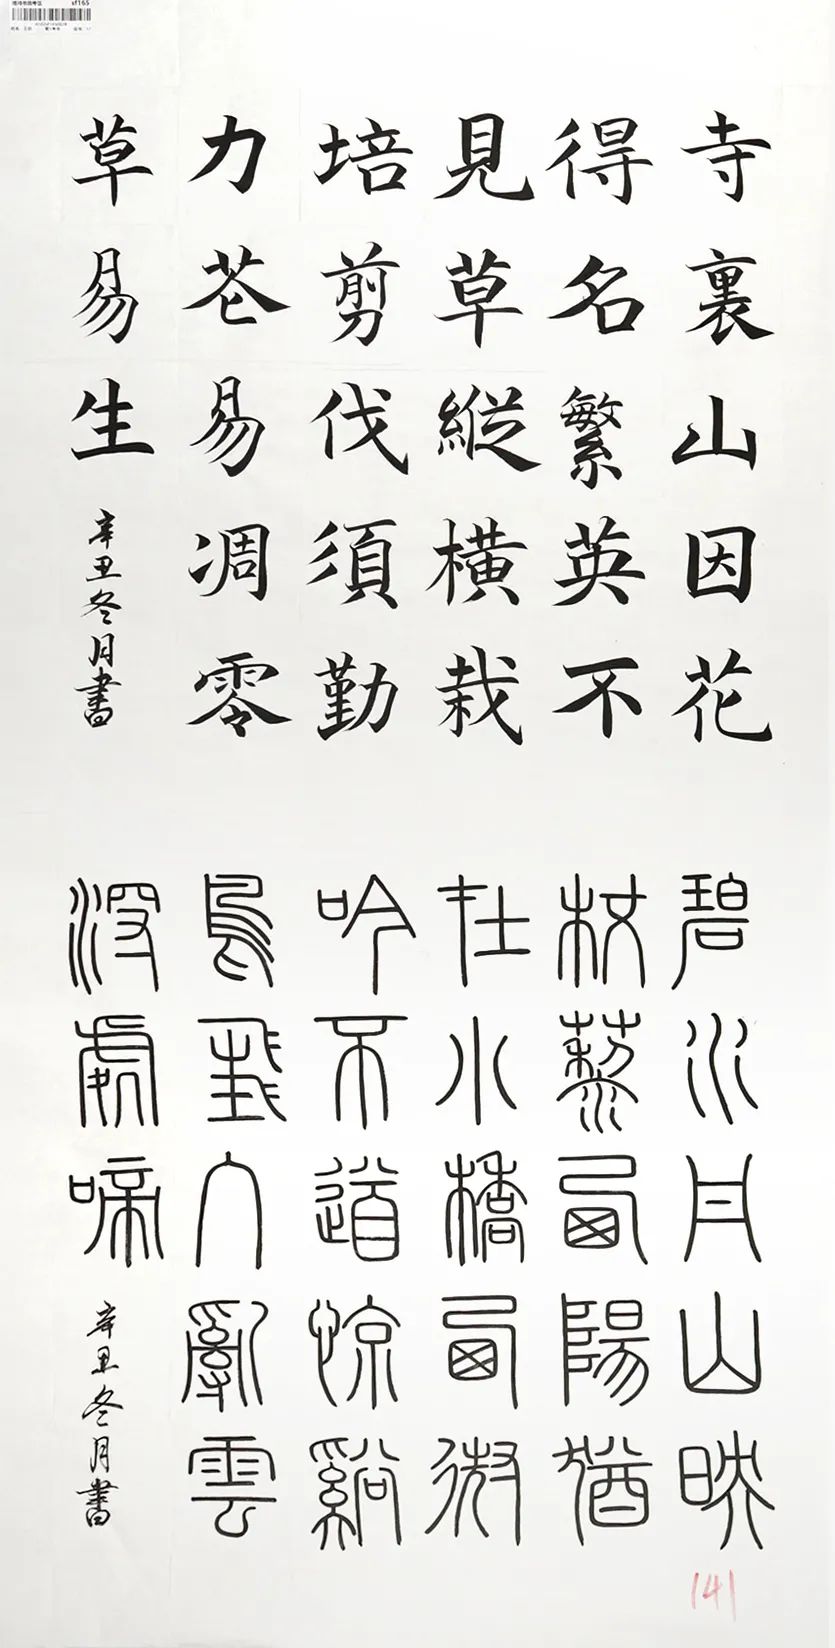 sf165
寺裏山因花
得名繁英不
見草縱橫栽
培剪伐須勤
力芲易凋零
草易生
辛丑冬月書
碧水丹山映
杖藜西陽猶
在小橋西微
吟不道惊谿
鳥飛入亂雲
深處啼
辛丑冬月書
141